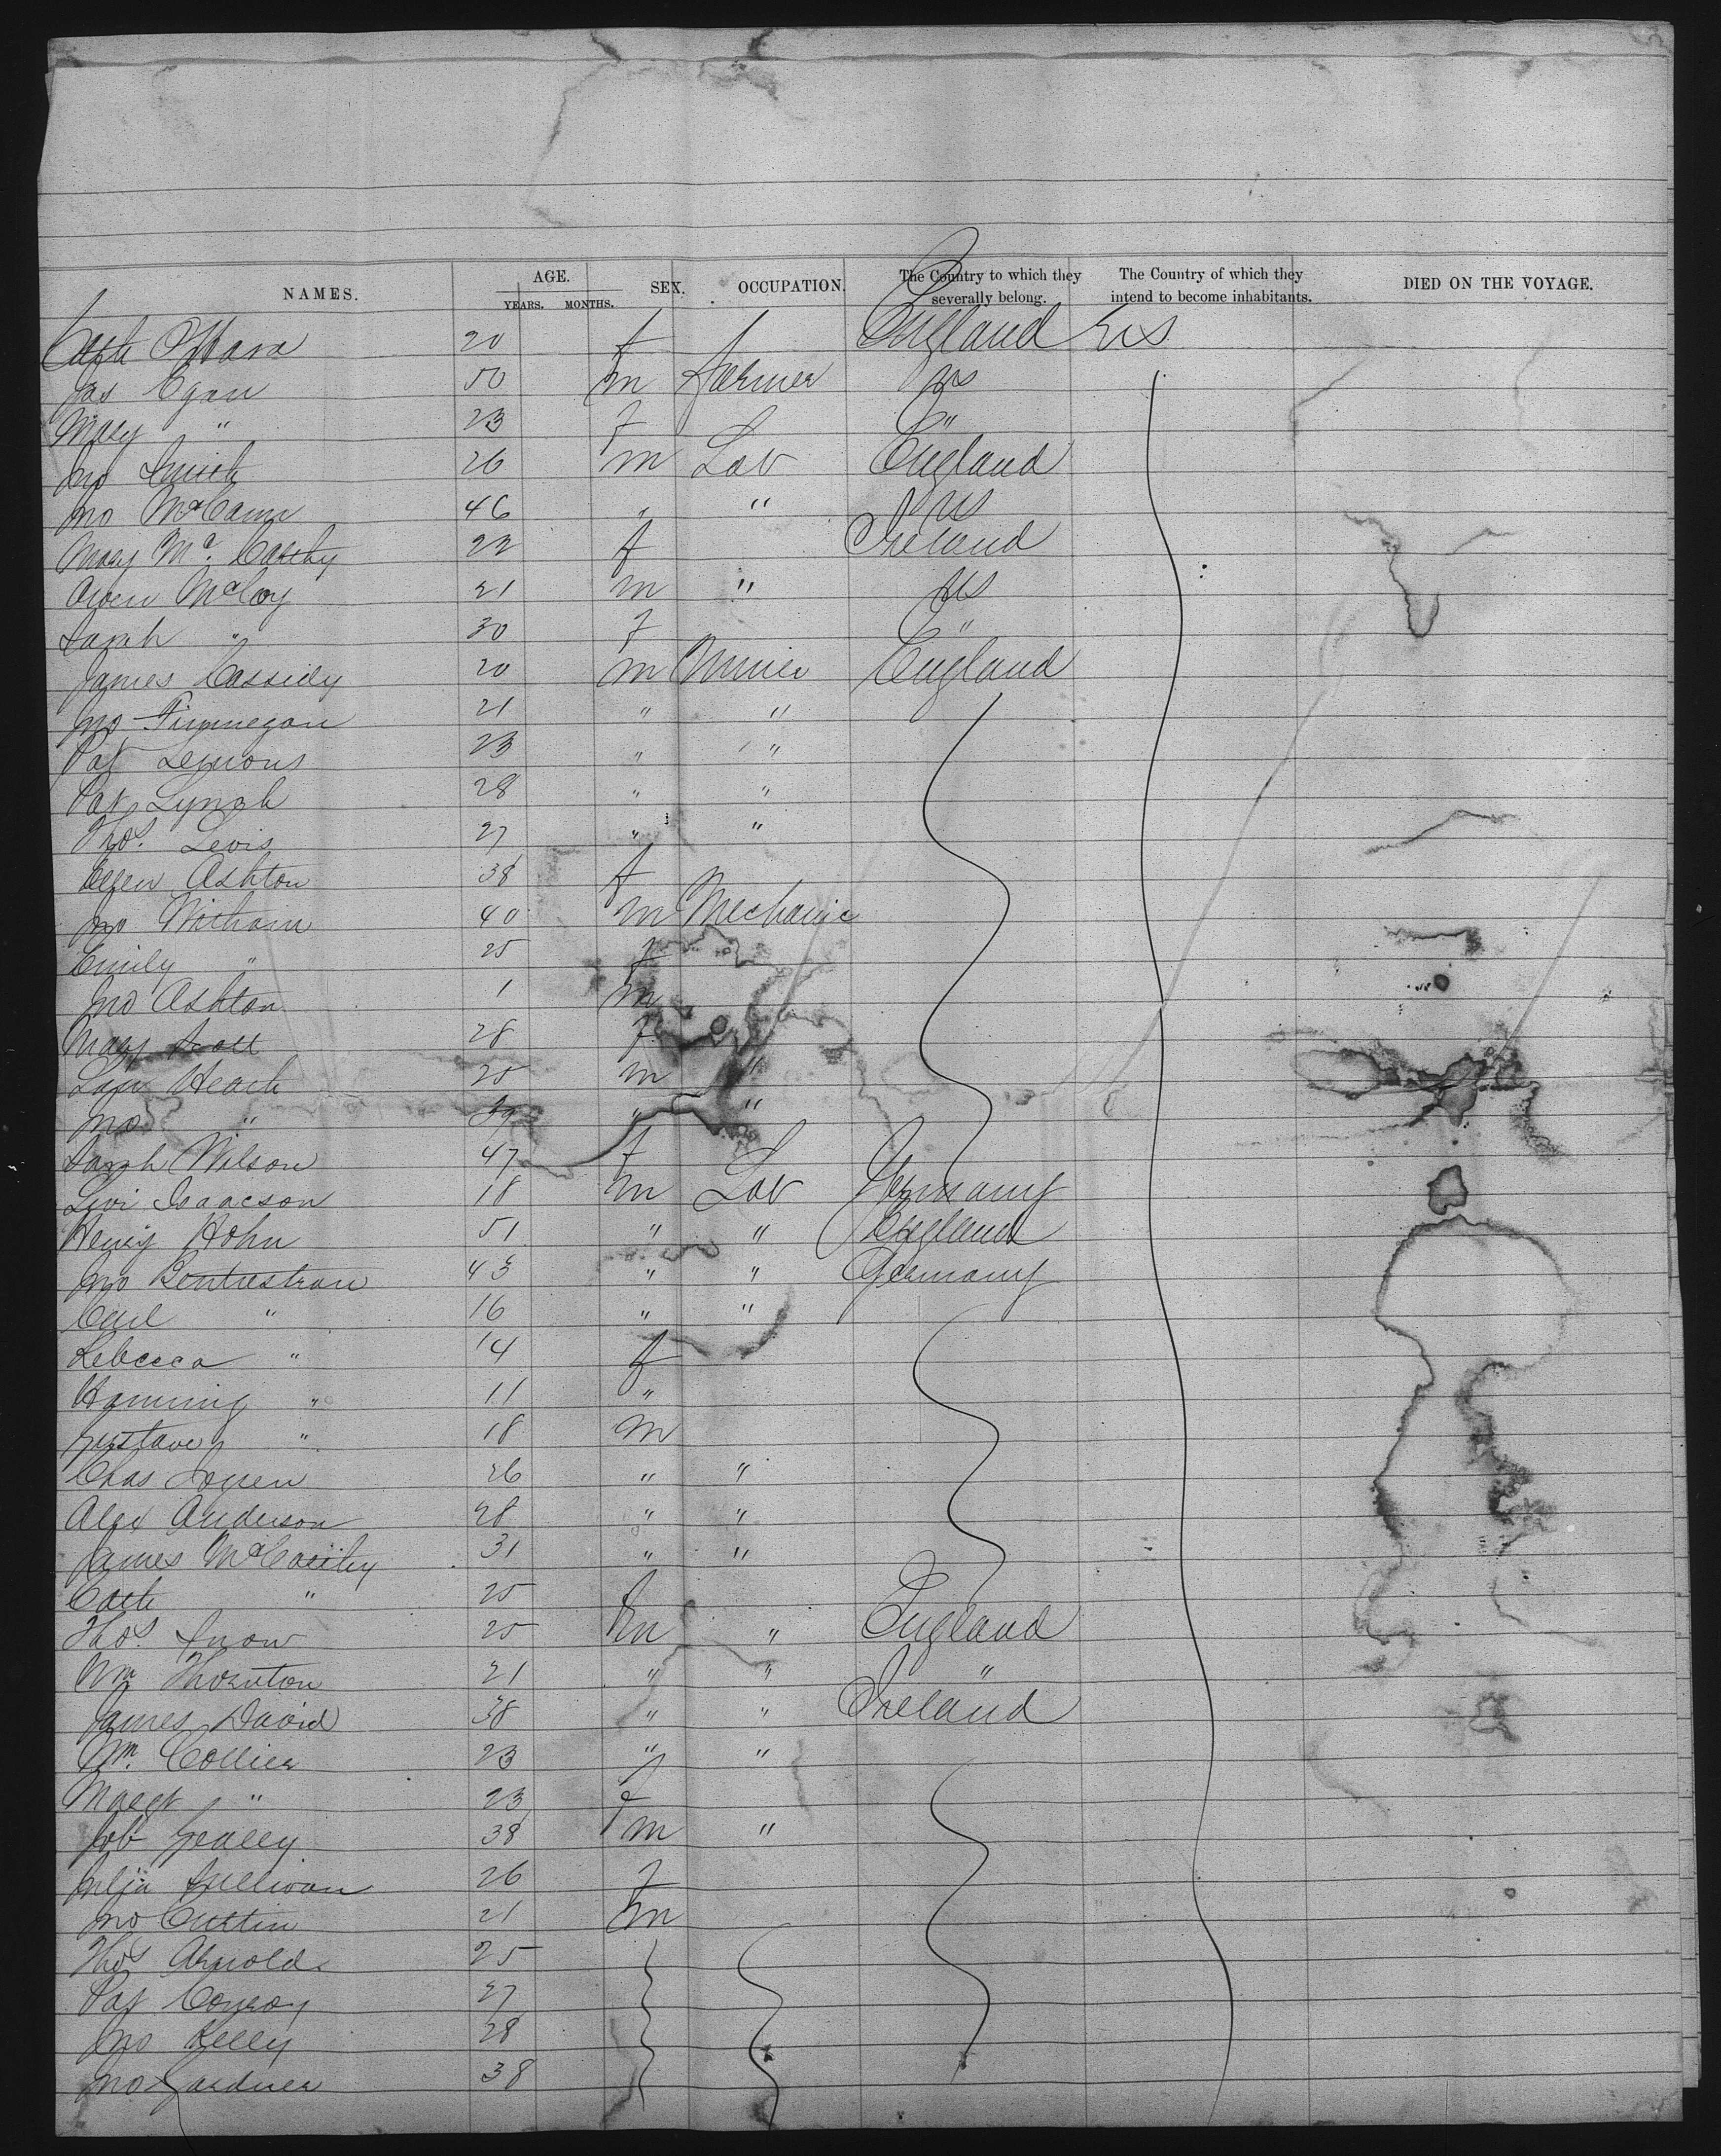 NAMES. AGE. YEARS. MONTHS. SEX. OCCUPATION. The Country to which they severally belong. The Country of which they intend to become inhabitants. DIED ON THE VOYAGE.
Cath O'Hara 20 f England US
Jas Egan 50 m Farmer US
Mary " 23 f "
Jno Smith 26 m Lab England
Jno McCann 46 " " US
Mary Mc. Carthy 22 f Ireland
Owen McCoy 21 m " US
Sarah " 30 f "
James Cassidy 20 m Miner England
Jno Finnegan 21 " "
Pat Lemons 23 " "
Pat Lynch 28 " "
Thos. Levis 27 " "
Ellen Ashton 38 f
Jno Witham 40 m Mechanic
Emily " 25 f
Jno Ashton 1 m
Mary Scott 28 f
Heach 25 m "
Jno " " "
Sarah Wilson 47 f
Levi Isaacson 18 m Lab Germany
Henry Hohn 51 " " England
Jno 43 " " Germany
Carl " 16 " "
Rebecca " 14 f
" 11 "
Gustave " 18 m
Chas 26 " "
Alex Anderson 28 " "
James McCarthy 31 " "
Cath " 25 f
Thos. Snow 25 m " England
Wm Thornton 21 " " "
James David 38 " " Ireland
Wm. Collier 23 " "
Margt " 23 f
Job 38 m "
Julia Sullivan 26 f
Jno 21 m
Thos Arnold 25
Pat Conroy 27
Jno Kelly 28
Jno Gardner 38